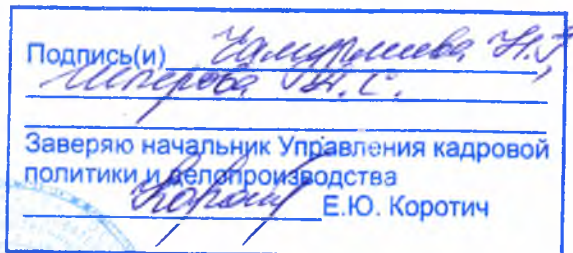 Подпись(и) Н.Г,
Шперова Н.С.
Заверяю начальник Управления кадровой
политики и делопроизводства
Е.Ю. Коротич